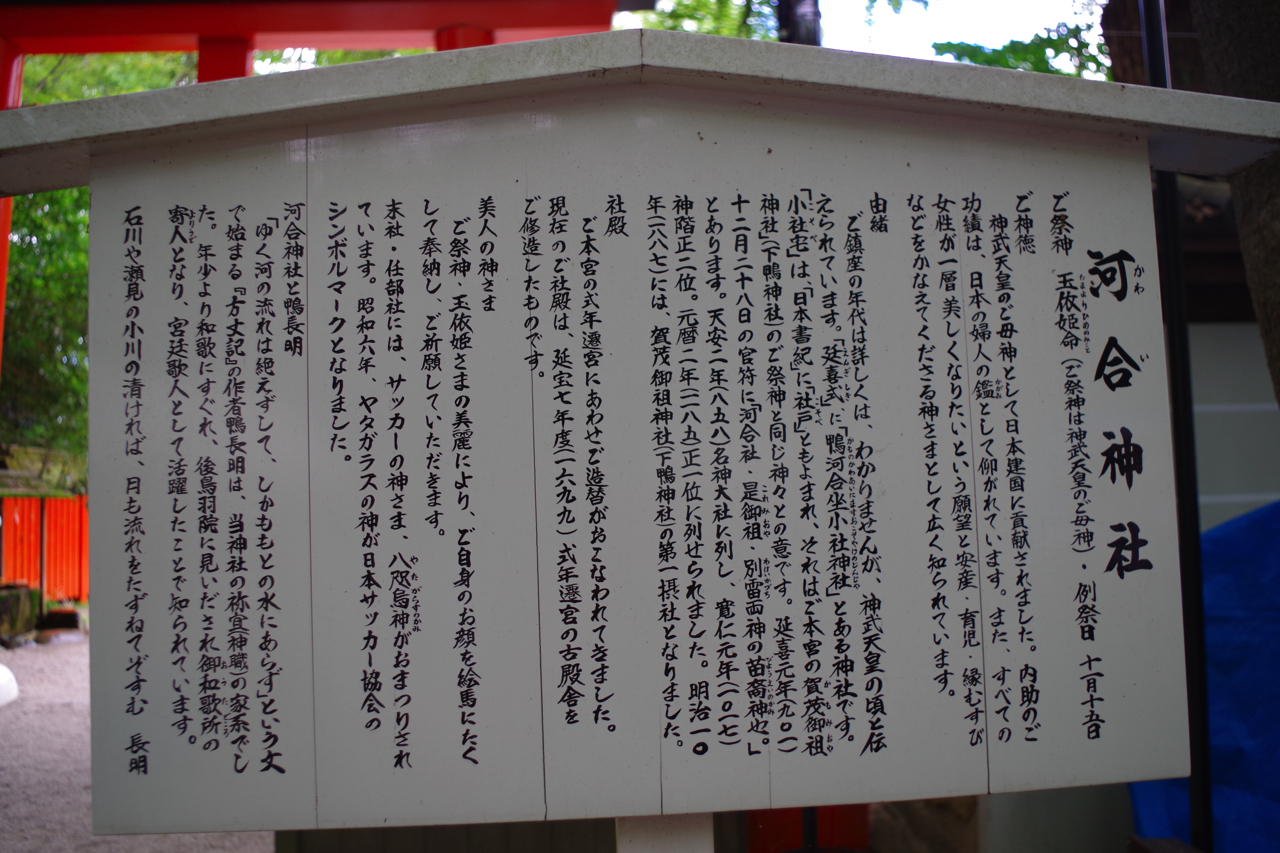 河合神社
ご祭神 玉依姫命(ご祭神は神武天皇のご母神)・例祭日 十一月十五日
ご神徳
神武天皇のご母神として日本建国に貢献されました。内助のご
功績は、日本の婦人の鑑として仰がれています。また、すべての
女性が一層美しくなりたいという願望と安産・育児 縁むすび
などをかなえてくださる神さまとして広く知られています。
由緒
ご鎮座の年代は詳しくは、わかりませんが、神武天皇の頃と伝
えられています。「延喜式」に、「鴨河合坐小社宅神社」とある神社です。
「小社宅」は、「日本書紀」に「社戸」ともよまれ、それはご本宮の賀茂御祖
神社(下鴨神社)のご祭神と同じ神々との意です。延喜元年(九〇一)
十二月二十八日の官符に「河合社・是御祖・別雷両神の苗裔神也。」
とあります。天安二年(八五八)名神大社に列し、寛仁元年(一〇一七)
神階正二位。元暦二年(一一八五)正一位に列せられました。明治一〇
年(一八八七)には、賀茂御祖神社(下鴨神社)の第一摂社となりました。
社殿
ご本宮の式年遷宮にあわせご造替がおこなわれてきました。
現在のご社殿は、延宝七年度(一六九九)式年遷宮の古殿舎を
ご修造したものです。
美人の神さま
ご祭神・玉依姫さまの美麗により、ご自身のお顔を絵馬にたく
して奉納し、ご祈願していただきます。
末社・任部社には、サッカーの神さま、八咫烏神がおまつりされ
ています。昭和六年、ヤタガラスの神が日本サッカー協会の
シンボルマークとなりました。
河合神社と鴨長明
「ゆく河の流れは絶えずして、しかももとの水にあらず」という文
で始まる『方丈記』の作者鴨長明は、当神社の祢宜(神職)の家系でし
た。年少より和歌にすぐれ、後鳥羽院に見いだされ御和歌所の
寄人となり、宮廷歌人として活躍したことで知られています。
石川や瀬見の小川の清ければ、月も流れをたずねてぞすむ 長明